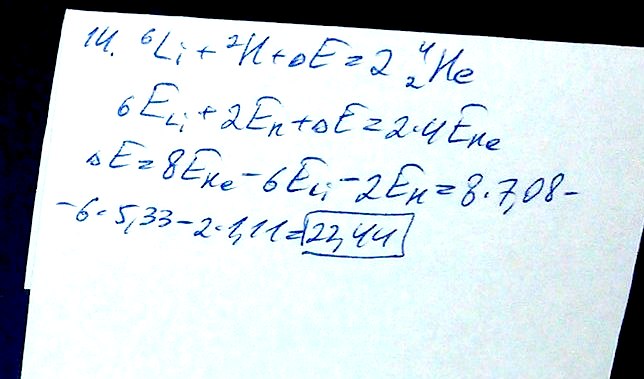 14. ⁶Li + ²H + ΔE = 2 ⁴₂He
6E_Li + 2E_H + ΔE = 2·4E_He
ΔE = 8E_He - 6E_Li - 2E_H = 8·7,08 -
- 6·5,33 - 2·1,11 = 22,44